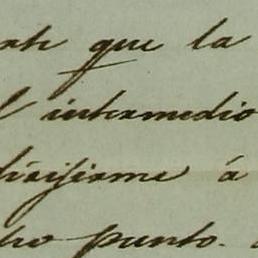 que la
intermedio
dirijirme á
punto.